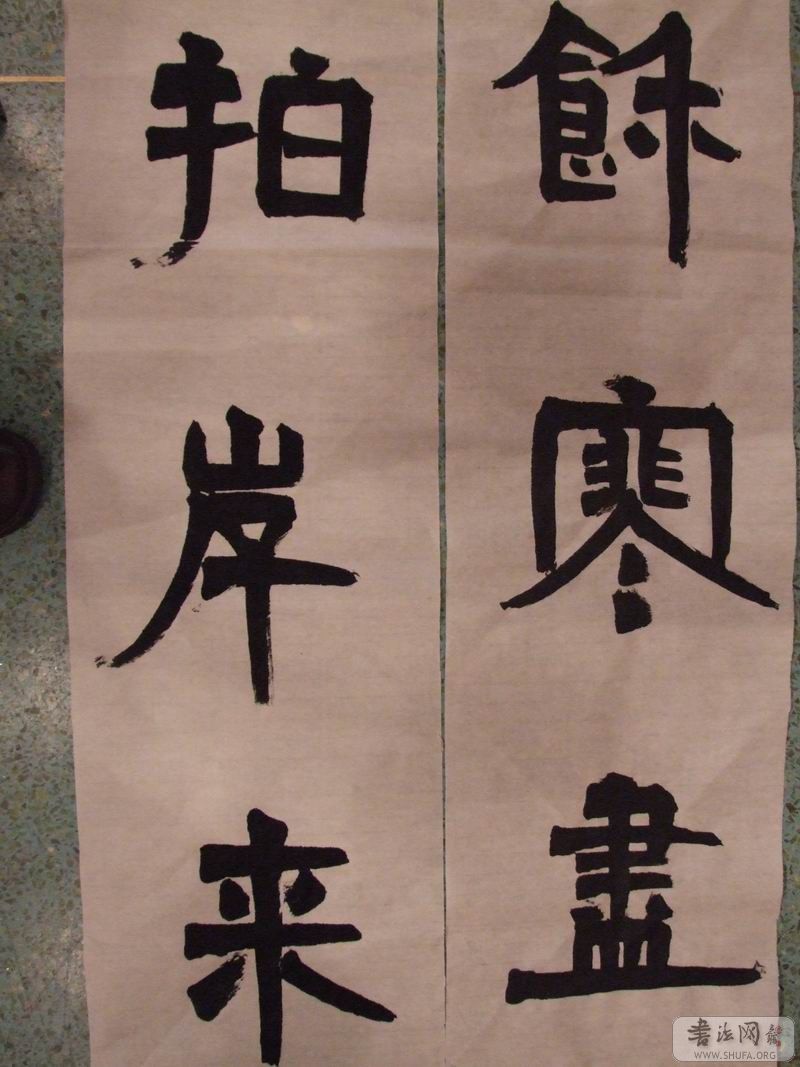 餘寒盡
拍岸来
書法网
WWW.SHUFA.ORG